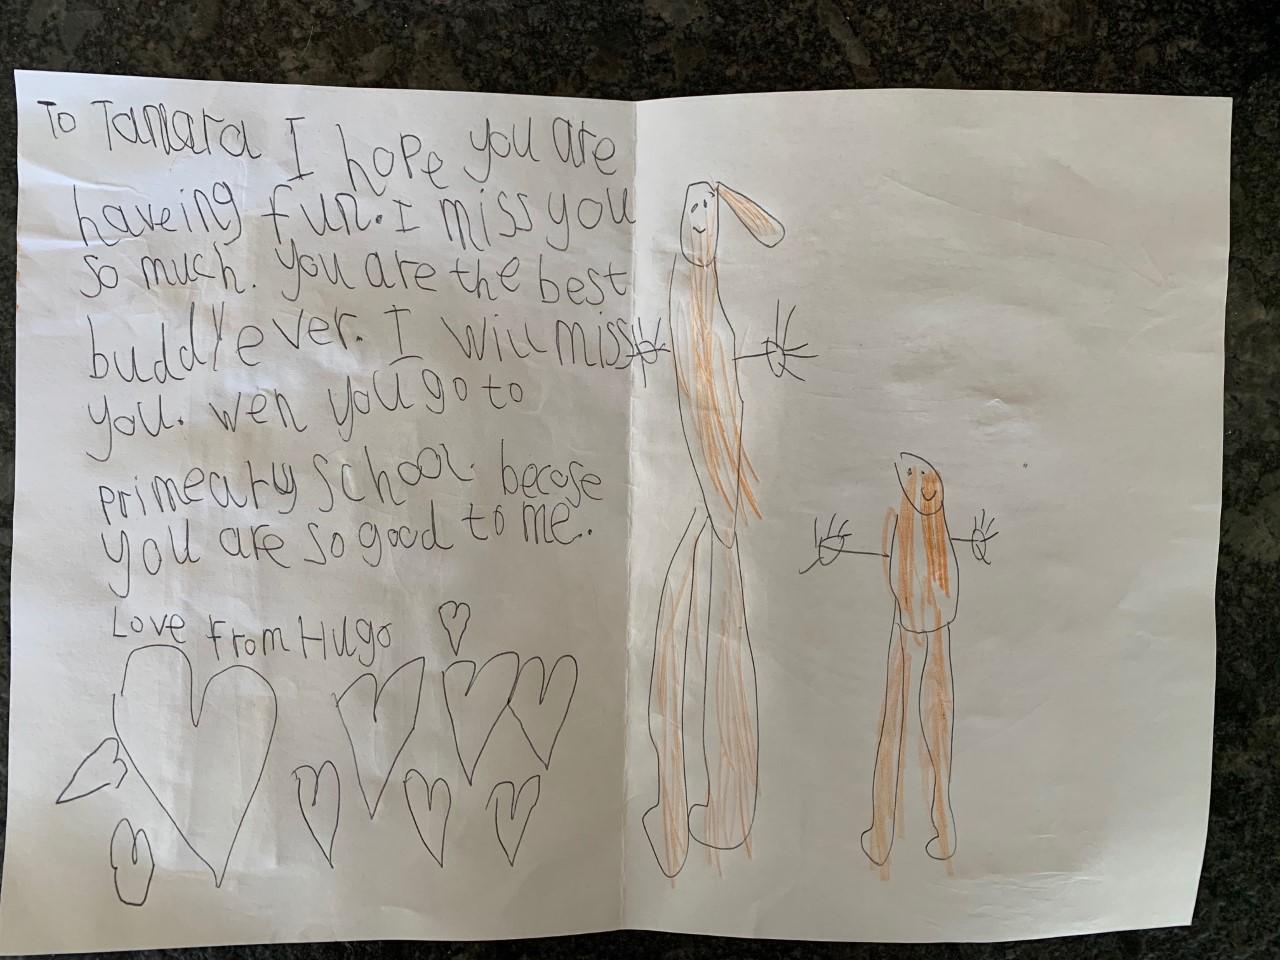 To Tamara I hope you are
haveing fun. I miss you
so much. you are the best
buddie ever. I will miss
you. wen you go to
primeary school. becose
you are so good to me.
Love from Hugo